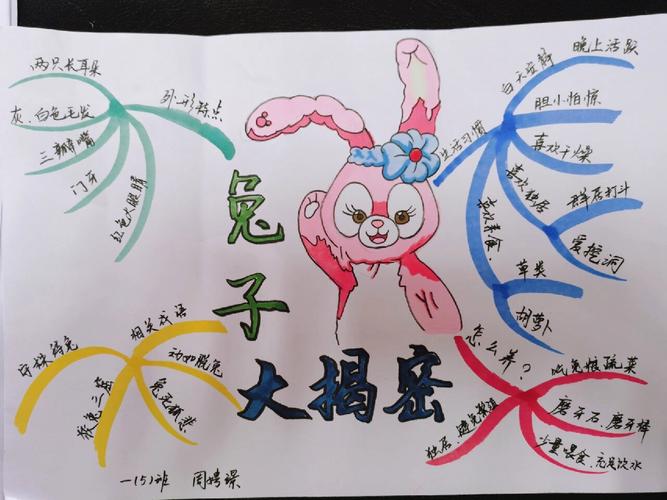 兔子
大揭密
外形特点
两只长耳朵
灰、白色毛发
三瓣嘴
门牙
红色大眼睛
生活习惯
白天安静
晚上活跃
胆小怕惊
喜欢干燥
喜欢独居
群居打斗
爱挖洞
喜欢素食
草类
胡萝卜
相关成语
守株待兔
狡兔三窟
兔死狐悲
动如脱兔
怎么养?
吃兔粮蔬菜
磨牙石、磨牙棒
少量喂食、充足饮水
独居、避免繁殖
一(5)班